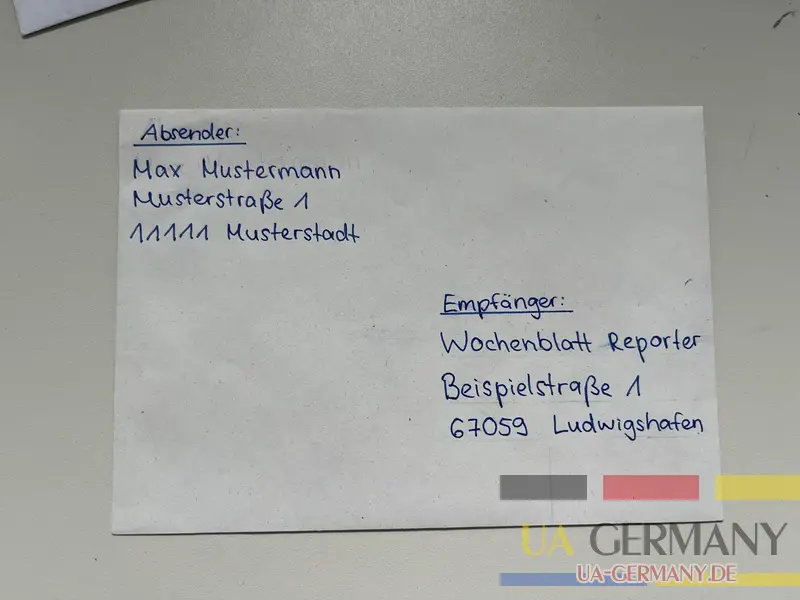 Absender:
Max Mustermann
Musterstraße 1
11111 Musterstadt
Empfänger:
Wochenblatt Reporter
Beispielstraße 1
67059 Ludwigshafen
UA GERMANY
UA-GERMANY.DE